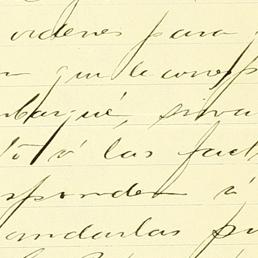 ordenes para
que le corresp
mbarqué, sirva
tó á las fact
sponder á
andarlas p